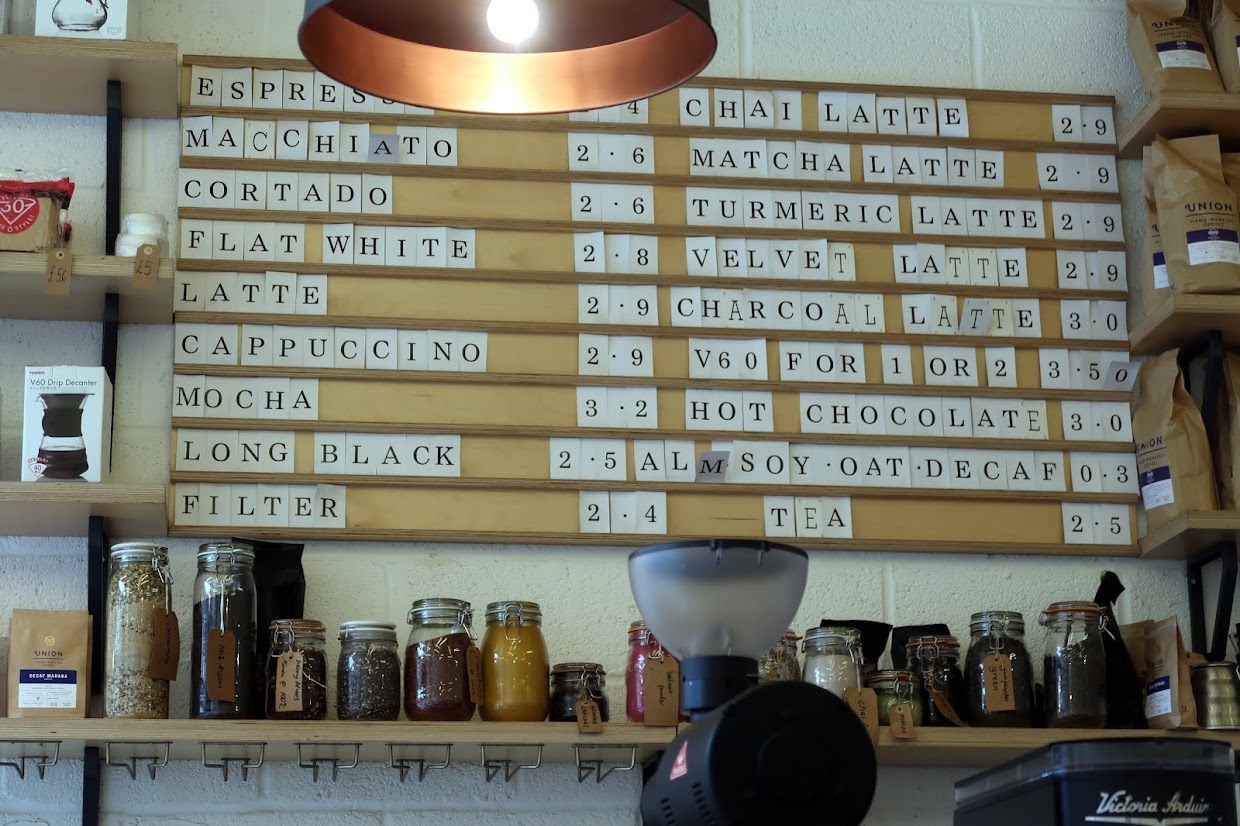 ESPRESS 4
MACCHIATO 2·6
CORTADO 2·6
FLAT WHITE 2·8
LATTE 2·9
CAPPUCCINO 2·9
MOCHA 3·2
LONG BLACK 2·5
FILTER 2·4
CHAI LATTE 2·9
MATCHA LATTE 2·9
TURMERIC LATTE 2·9
VELVET LATTE 2·9
CHARCOAL LATTE 3·0
V60 FOR 1 OR 2 3·50
HOT CHOCOLATE 3·0
ALM SOY·OAT·DECAF 0·3
TEA 2·5
£5
HARIO
V60 Drip Decanter
UNION
HAND-ROASTED
COFFEE
UNION
HAND-ROASTED
UNION
UNION
DECAF MARABA
Victoria Arduin